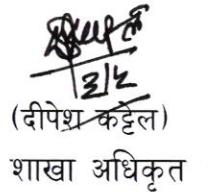 ३/५
(दीपेश कट्टेल)
शाखा अधिकृत